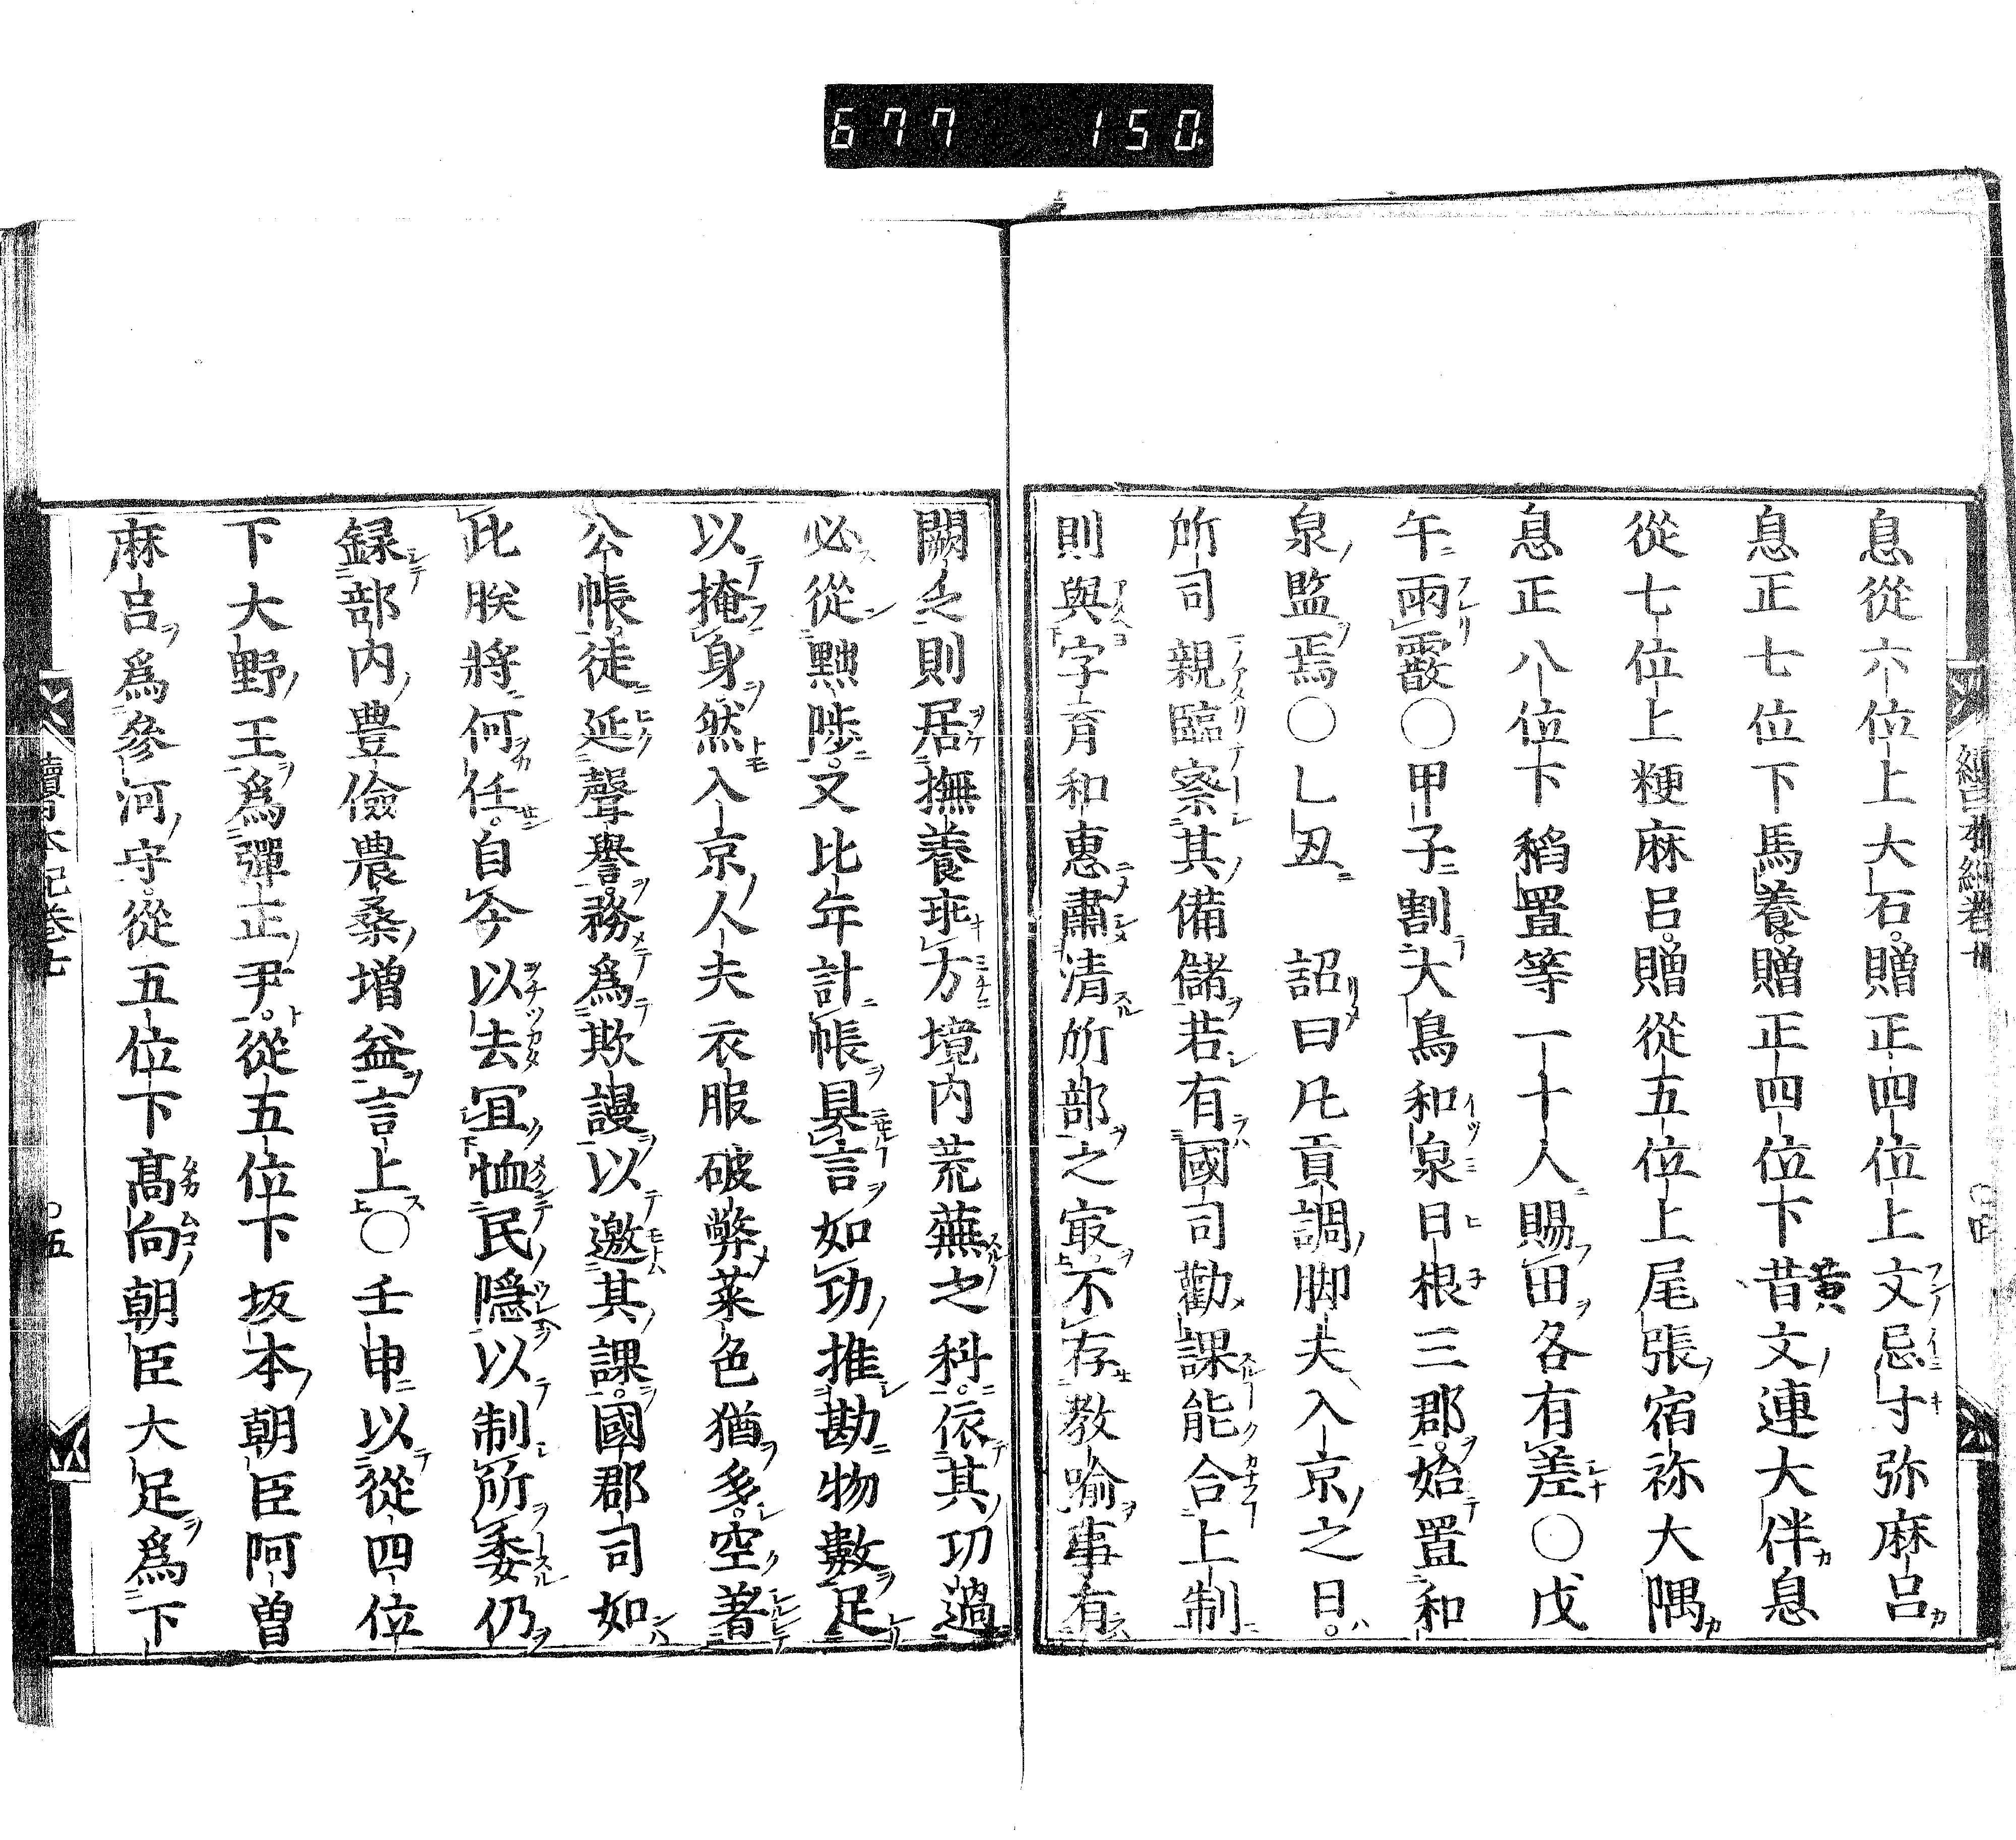 677 150.
息從六位上大石。贈正四位上文忌寸弥麻呂
息正七位下馬養。贈正四位下黃昔文連大伴息
從七位上粳麻呂。贈從五位上尾張宿祢大隅
息正八位下稻置等一十人賜田各有差〇戊
午雨霰〇甲子割大鳥和泉日根三郡。始置和
泉監焉〇乙丑 詔曰凡貢調脚夫入京之日。
所司親臨察其備儲若有國司勸課能合上制
則與字育和惠肅清所部之最不存教喻事有
闕乏則居撫養乖方境内荒蕪之科。依其功過
必從黜陟。又比年計帳具言如功推勘物數足
以掩身然入京人夫衣服破弊菜色猶多。空著
公帳。徒延聲譽。務爲欺謾以邀其課。國郡司如
此朕將何任。自今以去宜恤民隱以制所委仍
録部内豊儉農桑增益言上〇壬申以從四位
下大野王爲彈正尹。從五位下坂本朝臣阿曾
麻呂爲參河守。從五位下髙向朝臣大足爲下
續日本紀卷七
〇五